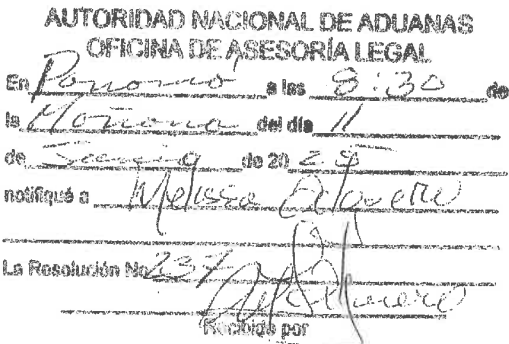 AUTORIDAD NACIONAL DE ADUANAS
OFICINA DE ASESORÍA LEGAL
En Panamá a las 8:30 de
la Mañana del día 11
de de 20 25
notifiqué a Melissa
La Resolución No 237
Recibido por